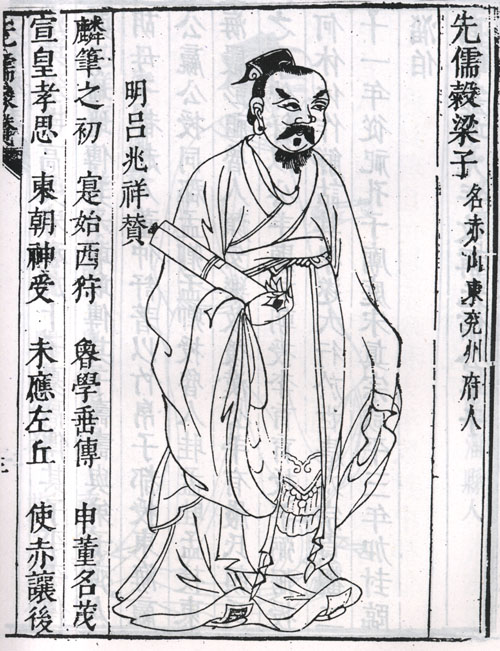 先儒穀梁子
名赤山東兗州府人
明呂兆祥贊
麟筆之初 寔始西狩 魯學垂傳 申董名茂
宣皇孝思 東朝神受 未應左丘 使赤讓後